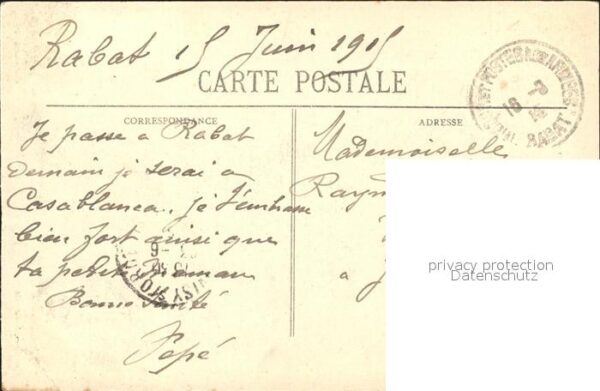 Rabat 15 Juin 1915
CARTE POSTALE
CORRESPONDANCE
Je passe a Rabat
Demain je serai a
Casablanca. je t'embrasse
bien fort ainsi que
ta petite maman
Bonne Santé
Pepé
ADRESSE
Mademoiselle
Raym
a
RABAT
privacy protection
Datenschutz